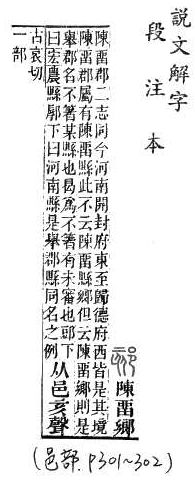 說文解字
段注本
郂 陳畱鄉
陳畱郡二志同今河南開封府東至歸德府西皆是其境
陳畱郡屬有陳畱縣此不云陳畱縣鄉但云陳畱鄉則是
舉郡名不著某縣也曷爲不著有未審也邸下
曰宏農縣郭下曰河南縣是舉郡縣同名之例
从邑亥聲
古哀切
一部
(邑部. P301~302)